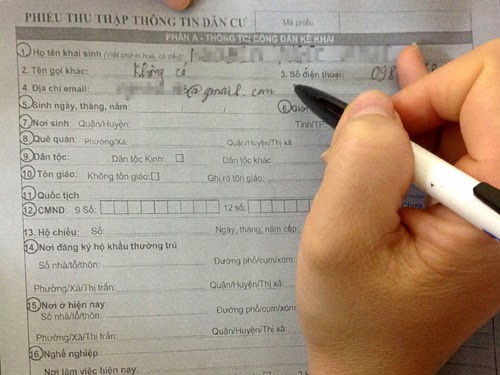 PHIẾU THU THẬP THÔNG TIN DÂN CƯ Mã phiếu
PHẦN A - THÔNG TIN CÔNG DÂN KÊ KHAI
1. Họ tên khai sinh (Viết chữ in hoa, có dấu):
2. Tên gọi khác: Không có 3. Số điện thoại: 098
4. Địa chỉ email: @gmail.com
5. Sinh ngày, tháng, năm: 6. Giới
7. Nơi sinh: Quận/Huyện: Tỉnh/TP:
8. Quê quán: Phường/Xã: Quận/Huyện/Thị xã:
9. Dân tộc: Dân tộc Kinh: Dân tộc khác:
10. Tôn giáo: Không tôn giáo: Ghi rõ tôn giáo:
11. Quốc tịch
12. CMND: 9 Số: 12 số:
13. Hộ chiếu: Số: Ngày, tháng, năm cấp:
14. Nơi đăng ký hộ khẩu thường trú
Số nhà/tổ/thôn: Đường phố/cụm/xóm:
Phường/Xã/Thị trấn: Quận/Huyện/Thị xã:
15. Nơi ở hiện nay:
Số nhà/tổ/thôn: Đường phố/cụm/xóm:
Phường/Xã/Thị trấn: Quận/Huyện/Thị xã:
16. Nghề nghiệp :
Nơi làm việc hiện nay: